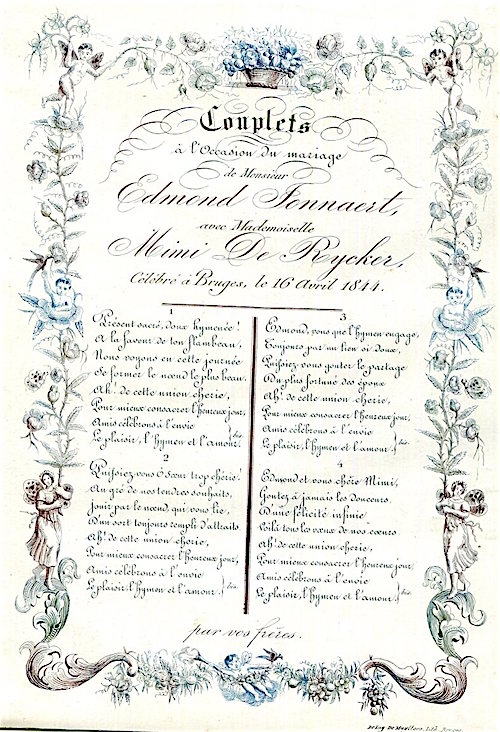 Couplets
à l'Occasion du mariage
de Monsieur
Edmond Fennaert,
avec Mademoiselle
Mimi De Rycker,
Célébré à Bruges, le 16 Avril 1844.
1
Présent sacré, doux hymenée !
A la faveur de ton flambeau,
Nous voyons en cette journée
Se former le nœud le plus beau.
Ah! de cette union chérie,
Pour mieux consacrer l'heureux jour,
Amis célébrons à l'envie
Le plaisir, l'hymen et l'amour. } bis.
2
Puissiez-vous ô Sœur trop chérie!
Au gré de nos tendres souhaits,
Jouir par le nœud qui vous lie,
D'un sort toujours rempli d'attraits.
Ah! de cette union chérie,
Pour mieux consacrer l'heureux jour,
Amis célébrons à l'envie
Le plaisir, l'hymen et l'amour. } bis.
3
Edmond, vous que l'hymen engage,
Toujours par un lien si doux,
Puissiez vous gouter le partage
Du plus fortuné des époux
Ah! de cette union chérie,
Pour mieux consacrer l'heureux jour,
Amis célébrons à l'envie
Le plaisir, l'hymen et l'amour. } bis.
4
Edmond et vous chère Mimi,
Goutez à jamais les douceurs.
D'une félicité infinie
Voilà tous les vœux de nos cœurs.
Ah! de cette union chérie,
Pour mieux consacrer l'heureux jour,
Amis célébrons à l'envie
Le plaisir, l'hymen et l'amour. } bis.
par vos frères.
De Lay-De Muelfers, Lith. Bruges.